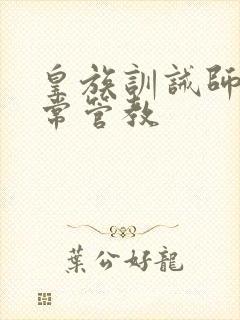 皇族訓誡師
常管教
葉公好龍